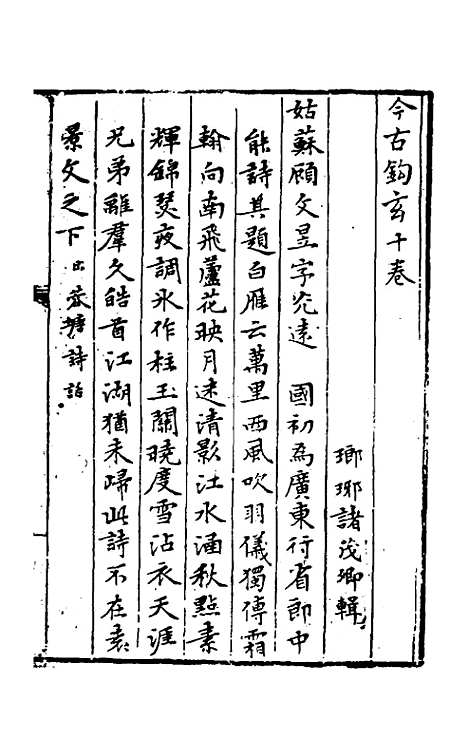 今古鈎玄十卷
瑯琊諸茂卿輯
姑蘇顧文昱字光遠　國初為廣東行省郎中
能詩其題白雁云萬里西風吹羽儀獨傳霜
翰向南飛蘆花映月迷清影江水涵秋點素
輝錦瑟夜調氷作柱玉關曉度雪沾衣天涯
兄弟離羣久皓首江湖猶未歸此詩不在袁
景文之下出菽塘詩話